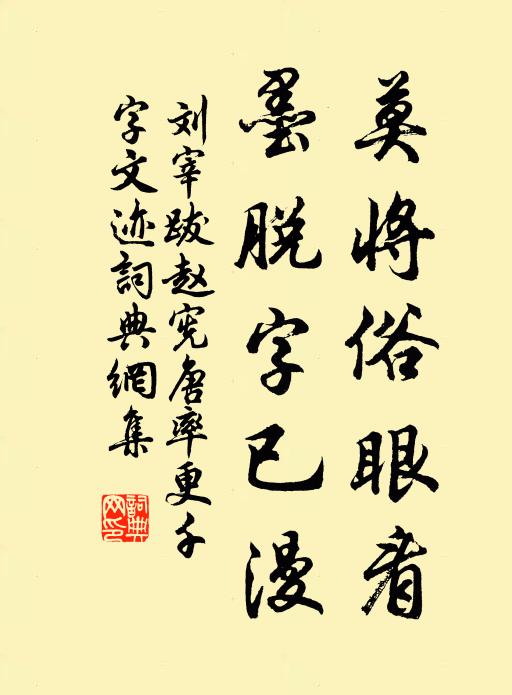 莫将俗眼看
墨脱字已漫
刘宰跋赵宪唐率更千
字文迹词典網集
詞典網印